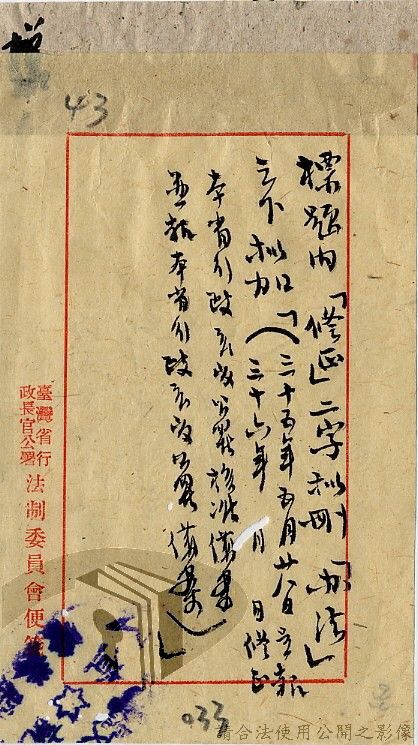 43
標題內「修正」二字擬刪「辦法」
之下擬加「(三十五年五月廿八日呈報
三十六年 月 日修正
本省行政長官公署核准備案
並報本省行政長官公署備案)」
臺灣省行政長官公署法制委員會便箋
033
請合法使用公開之影像